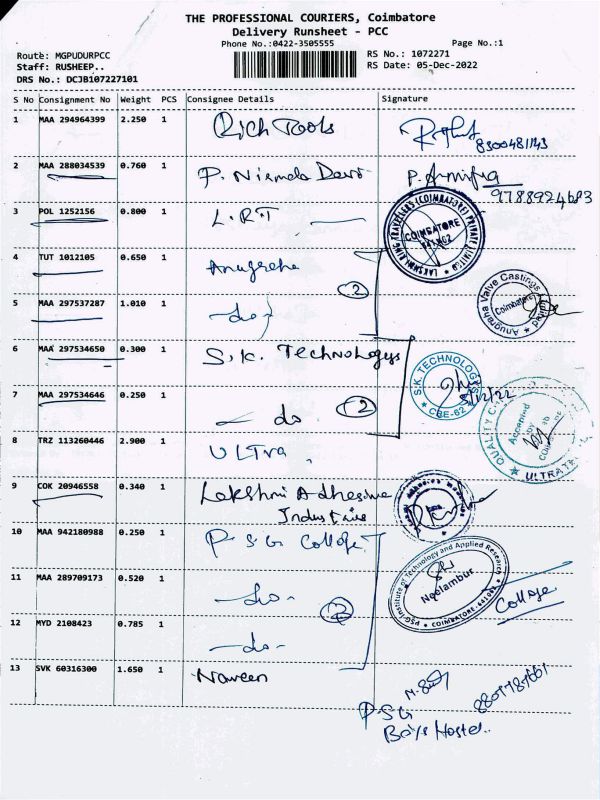 THE PROFESSIONAL COURIERS, Coimbatore
Delivery Runsheet - PCC
Phone No.:0422-3505555 Page No.:1
Route: MGPUDURPCC RS No.: 1072271
Staff: RUSHEEP.. RS Date: 05-Dec-2022
DRS No.: DCJB107227101
S No Consignment No Weight PCS Consignee Details Signature
1 MAA 294964399 2.250 1 Rich Tools 8300481143
2 MAA 288034539 0.760 1 P. Nirmala Devi
3 POL 1252156 0.800 1 L.R.T
LAKSHMI RING TRAVELLERS (COIMBATORE) PRIVATE LIMITED
COIMBATORE
641 002
4 TUT 1012105 0.650 1 Anugraha
2
Anugraha Valve Castings Limited
Coimbatore
5 MAA 297537287 1.010 1 -do-
6 MAA 297534650 0.300 1 S.K. Technologys
S.K. TECHNOLOGY
CBE-62
5/12/22
7 MAA 297534646 0.250 1 - do - 2
QUALITY
ULTRA
8 TRZ 113260446 2.900 1 ULTra
9 COK 20946558 0.340 1 Lakshmi Adhesive
Industries
10 MAA 942180988 0.250 1 P.S.G College
PSG-Institute of Technology and Applied Research
Neelambur
11 MAA 289709173 0.520 1 -do-
College
12 MYD 2108423 0.785 1 -do-
13 SVK 60316300 1.650 1 Naveen
P.S.G
Boys Hostel..